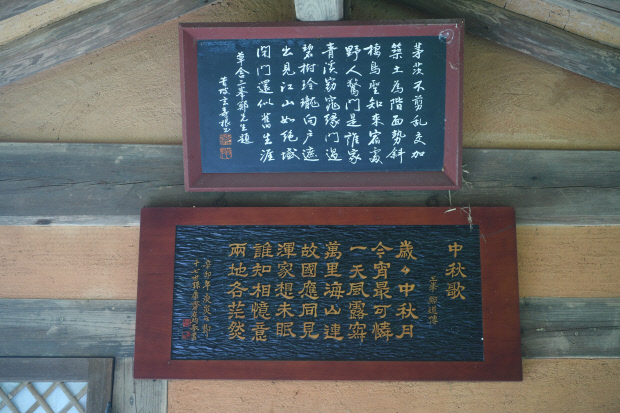 茅茨不剪亂交加
築土為階面勢斜
棲鳥聖知來宿處
野人驚問是誰家
青溪窈窕緣門過
碧樹玲瓏向戶遮
出見江山如絶域
閉門還似舊生涯
草舍三峯鄭先生題
中秋歌
三峯 鄭道傳
歲々中秋月
今宵最可憐
一天風露寂
萬里海山連
故國應同見
渾家想未眠
誰知相憶意
兩地各茫然
辛卯年